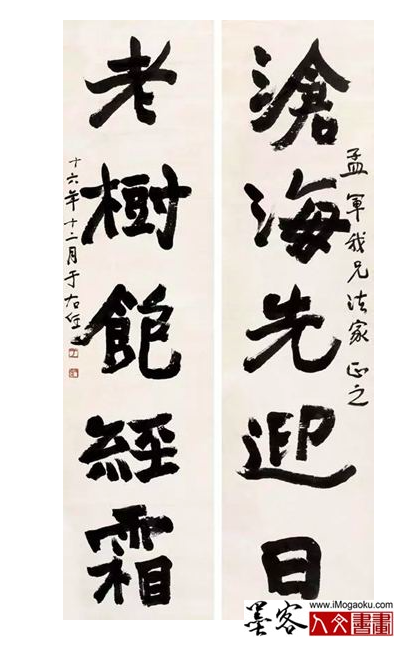 滄海先迎日
孟軍我兄法家正之
老樹飽經霜
十六年十二月于右任
墨客
www.iMogaoku.com
人文書畫